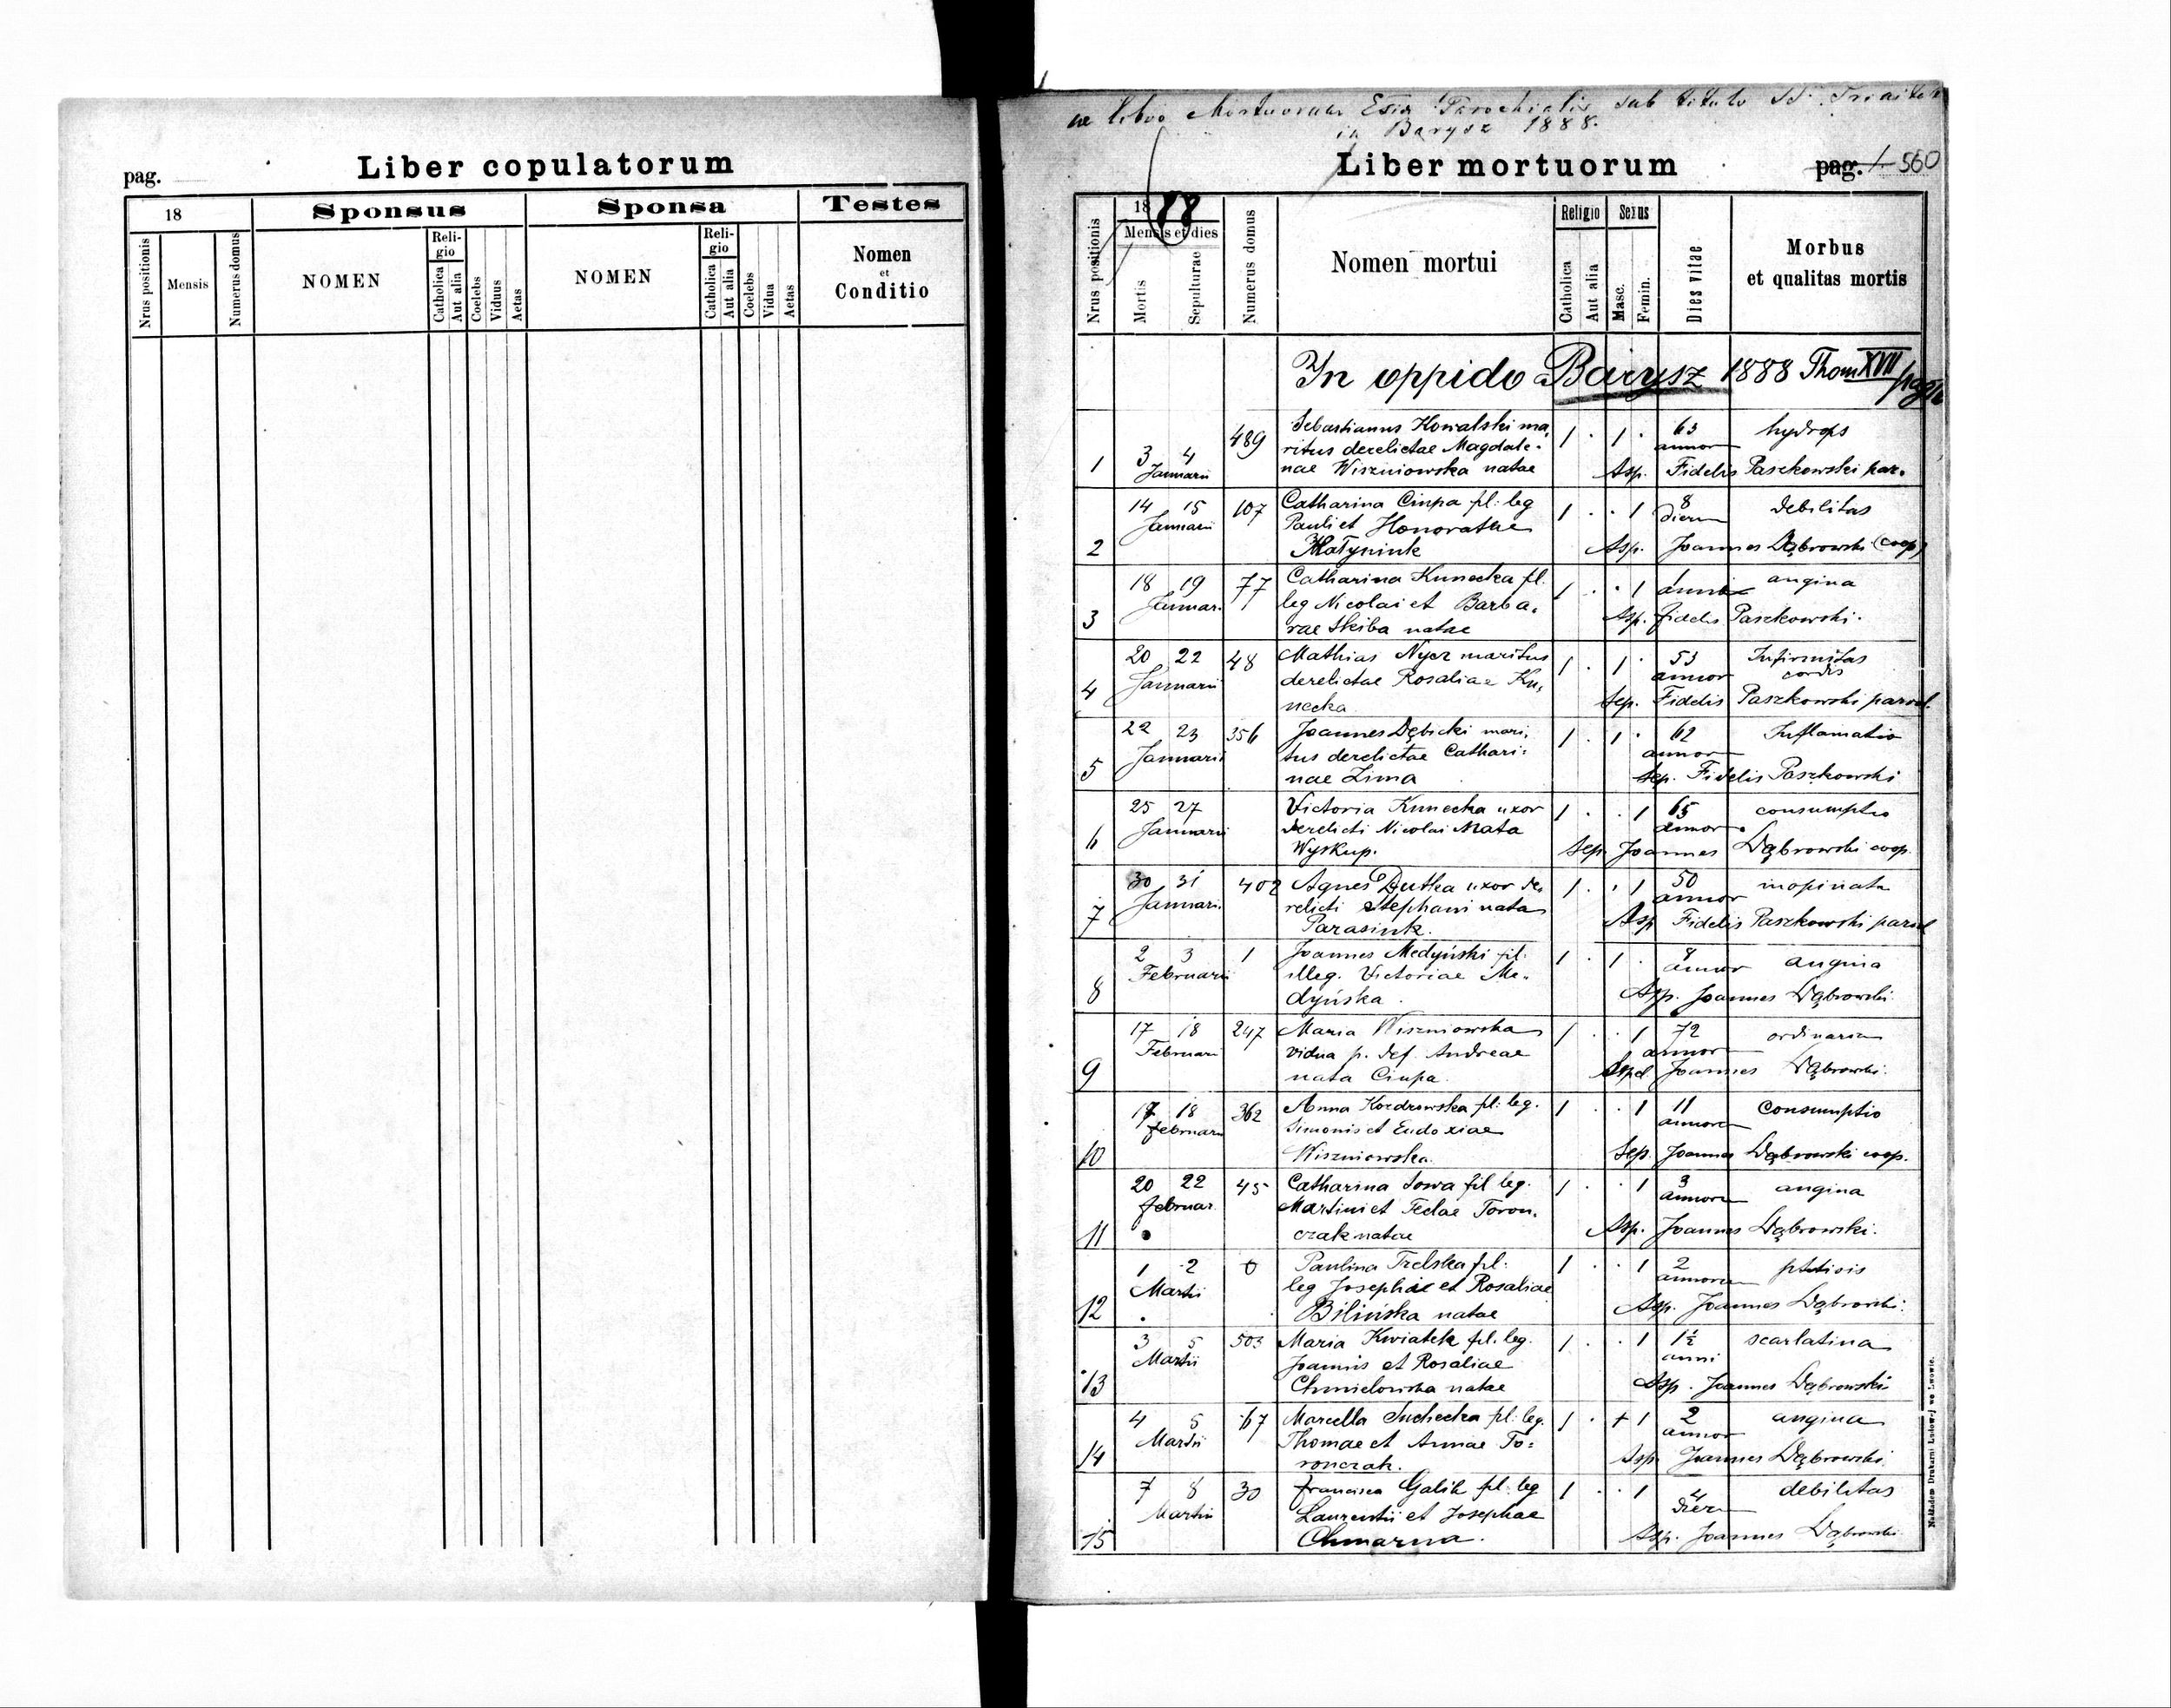 pag.
Liber copulatorum
18
Sponsus
Sponsa
Testes
Nrus positionis
Mensis
Numerus domus
NOMEN
Reli-
gio
Catholica
Aut alia
Coelebs
Viduus
Aetas
NOMEN
Reli-
gio
Catholica
Aut alia
Coelebs
Vidua
Aetas
Nomen
et
Conditio
Mortuorum Parochialis sub titulo
in Barysz 1888.
Liber mortuorum
pag. 1 560
Nrus positionis
1888
Mensis et dies
Mortis
Sepulturae
Numerus domus
Nomen mortui
Religio
Catholica
Aut alia
Sexus
Masc.
Femin.
Dies vitae
Morbus
et qualitas mortis
In oppido Barysz 1888 Thom XVII
489 Sebastianus Kowalski ma 1 · 1 · 63 hydrops
3 4 ritus derelictae Magdale- annor
1 Januarii nae Wiszniowska natae Asp. Fidelis Paszkowski par.
14 15 107 Catharina Ciupa fl: leg 1 · · 1 8 debilitas
Januarii Pauli et Honorathae dierum
2 Małyniuk Asp. Joannes Dąbrowski (coop)
18 19 77 Catharina Kunecka fl. 1 · · 1 1 angina
Januar. leg Nicolai et Barba- anni
3 rae Skiba natae Asp. Fidelis Paszkowski.
20 22 48 Mathias Nycz maritus 1 · 1 · 53 Infirmitas
4 Januarii derelictae Rosaliae Ku- annor cordis
necka Sep. Fidelis Paszkowski paroch.
22 23 356 Joannes Dębicki mari- 1 · 1 · 62 Inflamatio
Januarii tus derelictae Cathari- annor
5 nae Zima Sep. Fidelis Paszkowski
25 27 Victoria Kunecka uxor 1 · · 1 65 consumptio
Januarii derelicti Nicolai Nata annor
6 Wyskup. Sep. Joannes Dąbrowski coop.
30 31 402 Agnes Dutka uxor de- 1 · · 1 50 inopinata
Januarii relicti Stephani nata annor
7 Parasiuk. Asp Fidelis Paszkowski paroch
2 3 1 Joannes Medyński fil. 1 · 1 · 8 angina
Februarii illeg. Victoriae Me- annor
8 dyńska. Asp. Joannes Dąbrowski.
17 18 247 Maria Wiszniowska 1 · · 1 72 ordinaria
Februari vidua p. def. Andreae annor
9 nata Ciupa. Joannes Dąbrowski.
17 18 362 Anna Kozdrowska fl: leg. 1 · · 1 11 Consumptio
Februarii Simonis et Eudoxiae annorum
10 Wiszniowska. Sep. Joannes Dąbrowski coop.
20 22 45 Catharina Sowa fil leg. 1 · · 1 3 angina
Februar. Martini et Teclae Toron- annorum
11 czak natae Asp. Joannes Dąbrowski.
1 2 0 Paulina Trelska fil: 1 · · 1 2 phtisis
Martii leg Josephae et Rosaliae annorum
12 Bilińska natae Asp. Joannes Dąbrowski.
3 5 503 Maria Kwiatek fil. leg. 1 · · 1 1½ scarlatina
Martii Joannis et Rosaliae anni
13 Chmielowska natae Asp. Joannes Dąbrowski
4 5 67 Marcella Suchecka fil: leg. 1 · + 1 2 angina
Martii Thomae et Annae To- annor
14 ronczak. Asp Joannes Dąbrowski.
7 8 30 Francisca Galik fil: leg 1 · · 1 4 debilitas
Martii Laurentii et Josephae dierum
15 Chmarna. Asp. Joannes Dąbrowski
Nakładem Drukarni Ludowej we Lwowie.